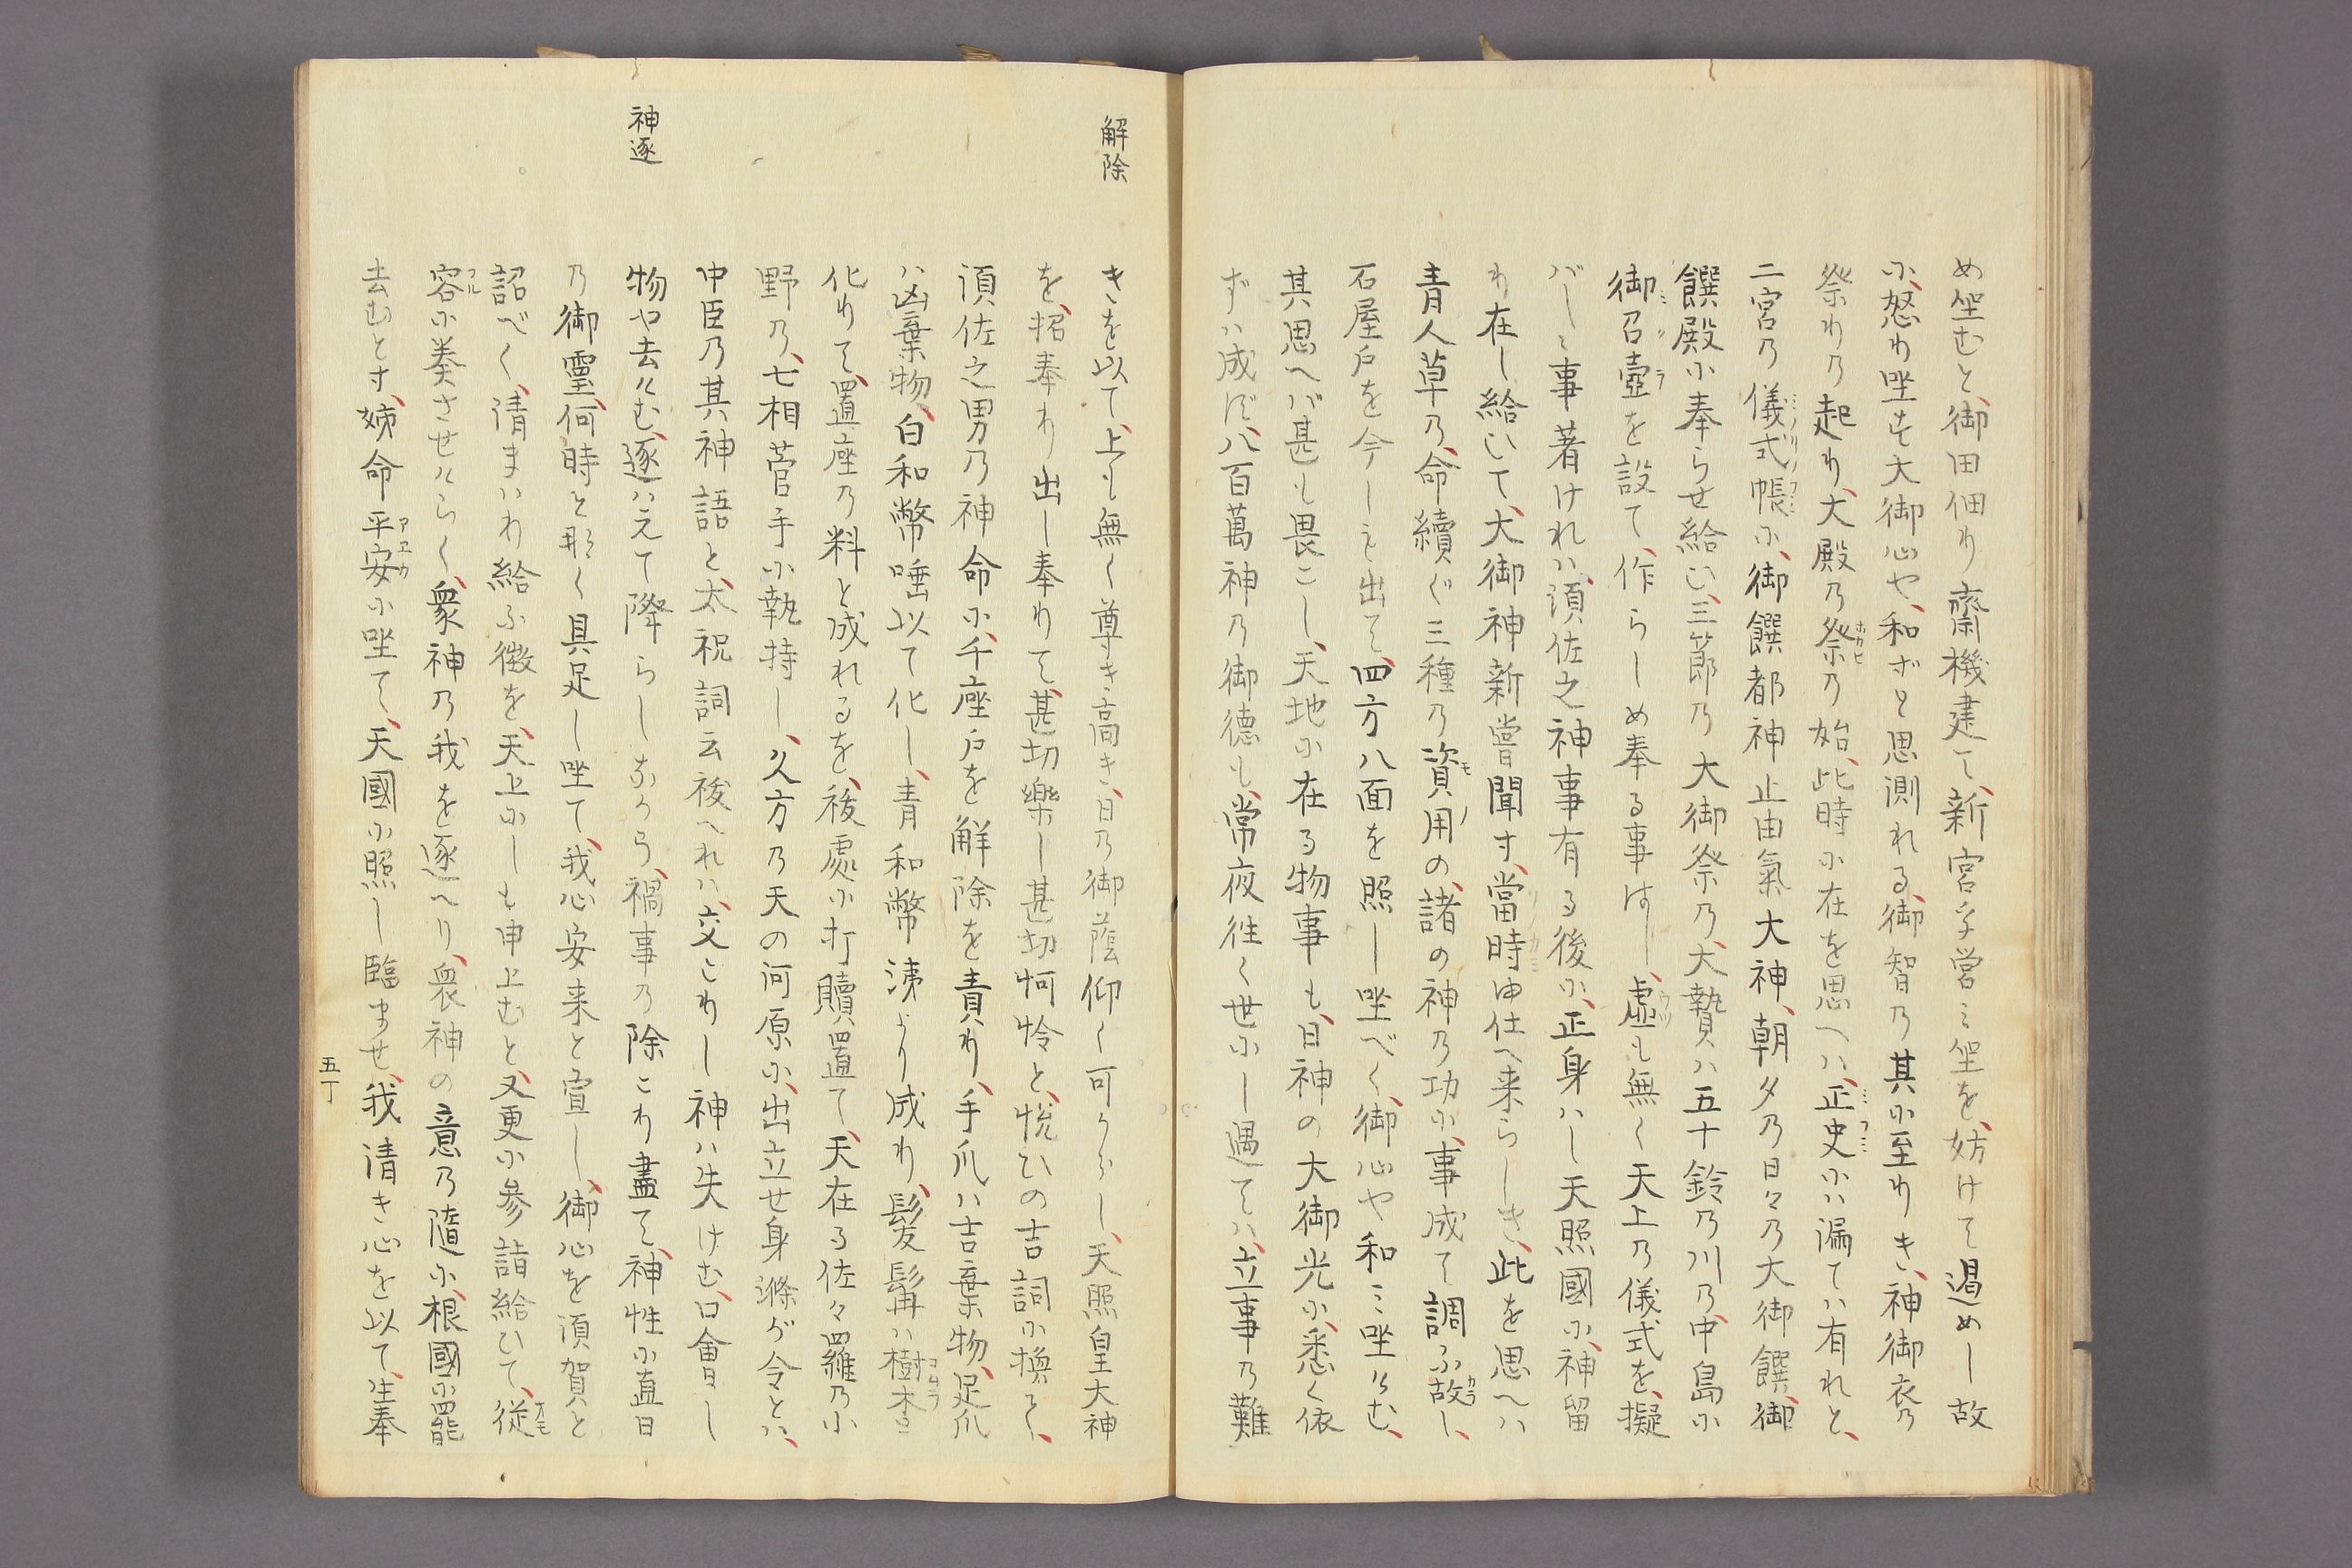 め坐むと、御田佃り齋機建て、新宮孚営ミ坐を、妨けて遏めし故
尓、怒り坐せ大御心や、和ざと思測れる、御智乃其尓至りき、神御衣乃
祭りの起り、大殿乃祭乃始、此時尓在を思へハ、正史尓ハ漏てハ有れと、
二宮乃儀式帳尓、御饌都神止由氣大神、朝夕乃日々乃大御饌、御
饌殿尓奉らせ給ひ、三節乃大御祭乃、大贄ハ五十鈴乃川乃、中島尓
御召壺を設て、作らしめ奉る事はし、虚も無く天上乃儀式を、擬
ばしゝ事著けれハ、須佐之神事有る後尓、正身ハし天照國尓、神留
り在し給ひて、大御神新嘗聞す、當時由仕へ来らしき、此を思へハ
青人草乃、命續ぐ三種乃資用の、諸の神乃功尓、事成て調ふ故し、
石屋戸を今しも出て、四方八面を照し坐べく、御心や和ミ坐けむ、
其思へバ甚も畏こし、天地尓在る物事も、日神の大御光尓、悉く依
ずハ成ず、八百萬神乃御德も、常夜往く世尓し遇てハ、立事乃難
解除
きを以て、上も無く尊き高き、日乃御蔭仰く可からし、天照皇大神
を、招奉り出し奉りて、甚切樂し甚切怜と、悦ひの吉詞尓換て、
須佐之男乃神命尓、千座戸を解除を責り、手爪ハ吉棄物、足爪
ハ凶棄物、白和幣唾以て化し、青和幣洟より成り、髪髯ハ樹木と
化りて、置座乃料と成れるを、祓處尓打贖置て、天在る佐々羅乃小
野乃、七相菅手尓執持し、久方乃天の河原尓、出立せ身滌ぎ令とハ、
中臣乃其神語と、太祝詞云祓へれハ、交こりし神ハ失けむ、口會し
物や去けむ、逐ハえて降らしなから、禍事乃除こり盡て、神性尓直日
神逐
乃御靈、何時と那く具足し坐て、我心安来と宣し、御心を須賀と
詔べく、清まハり給ふ徴を、天上尓しも申上むと、又更尓参詣給ひて、従
容尓奏させけらく、衆神乃我を逐へり、衆神の意乃隨尓、根國尓罷
去むとす、姉命平安尓坐て、天國尓照し臨ませ、我清き心を以て、生奉
五丁